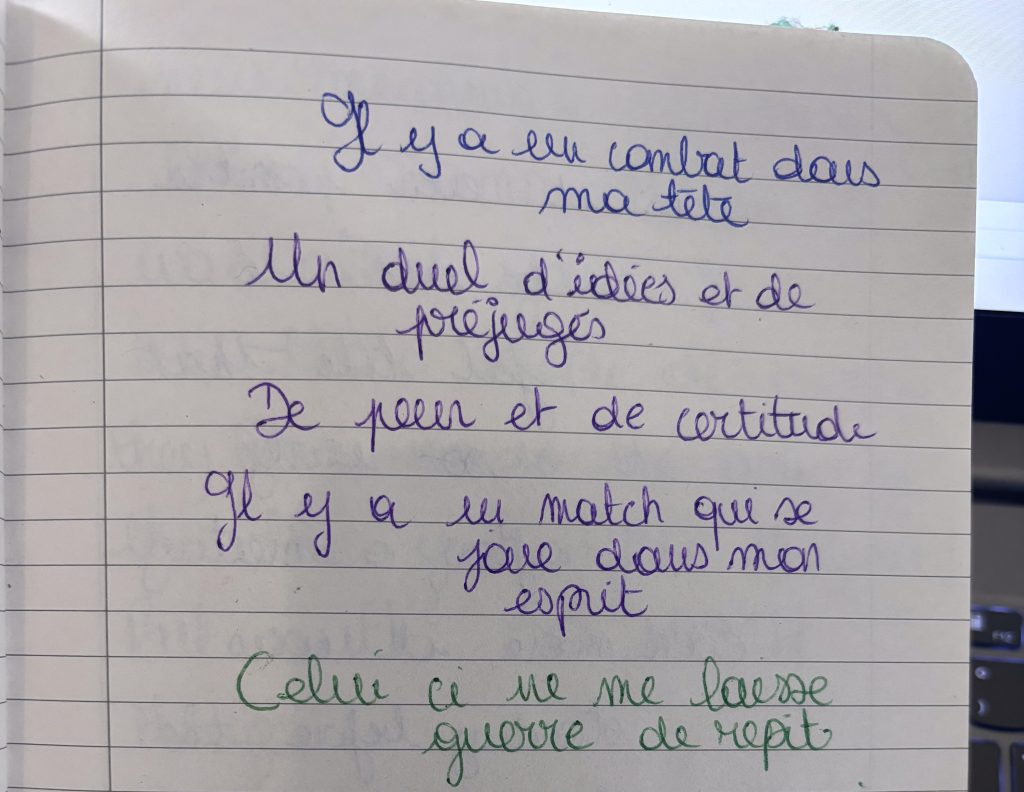 Il y a un combat dans
ma tête
Un duel d'idées et de
préjugés
De peur et de certitude
Il y a un match qui se
joue dans mon
esprit
Celui ci ne me laisse
guerre de repit